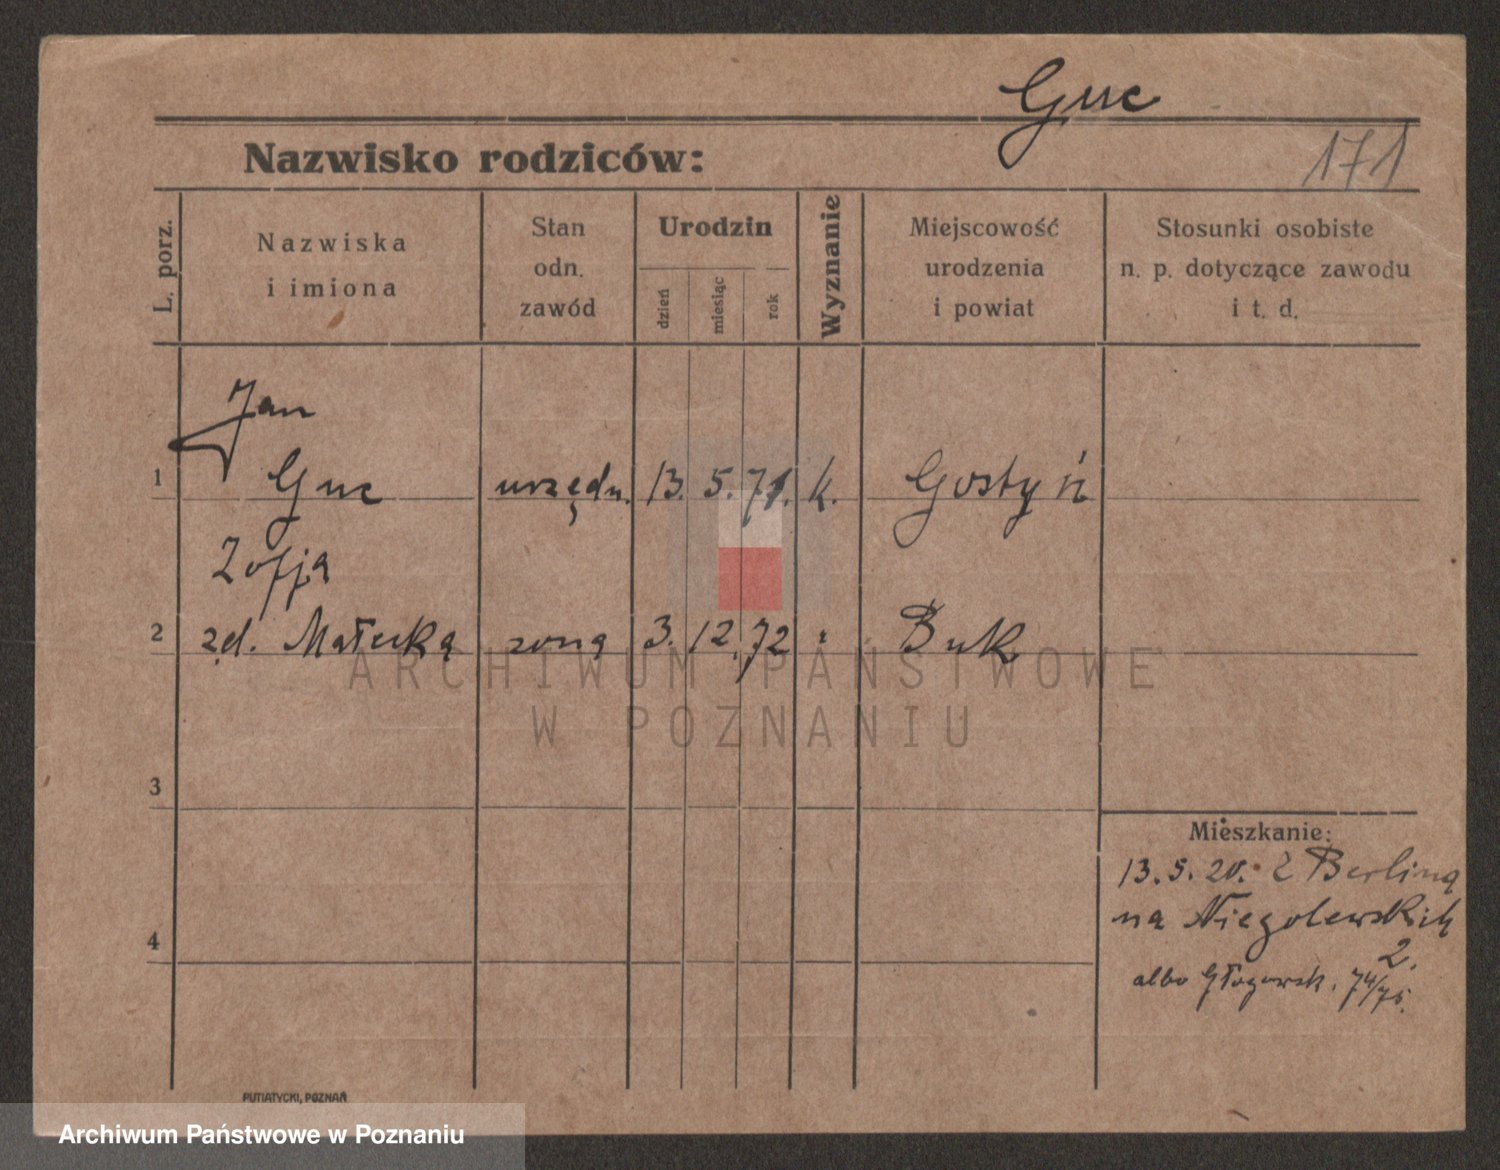 Guc
Nazwisko rodziców:
171
L. porz.
Nazwiska
i imiona
Stan
odn.
zawód
Urodzin
dzień
miesiąc
rok
Wyznanie
Miejscowość
urodzenia
i powiat
Stosunki osobiste
n. p. dotyczące zawodu
i t. d.
Jan
1 Guc urzędn. 13. 5. 71. k. Gostyń
Zofja
2 zd. Małecka żona 3. 12. 72 " Buk
ARCHIWUM PAŃSTWOWE
W POZNANIU
3
Mieszkanie:
13.5.20. z Berlina
na Niegolewskich
4
2.
albo Głogowsk. 74/75.
PUTIATYCKI, POZNAŃ
Archiwum Państwowe w Poznaniu